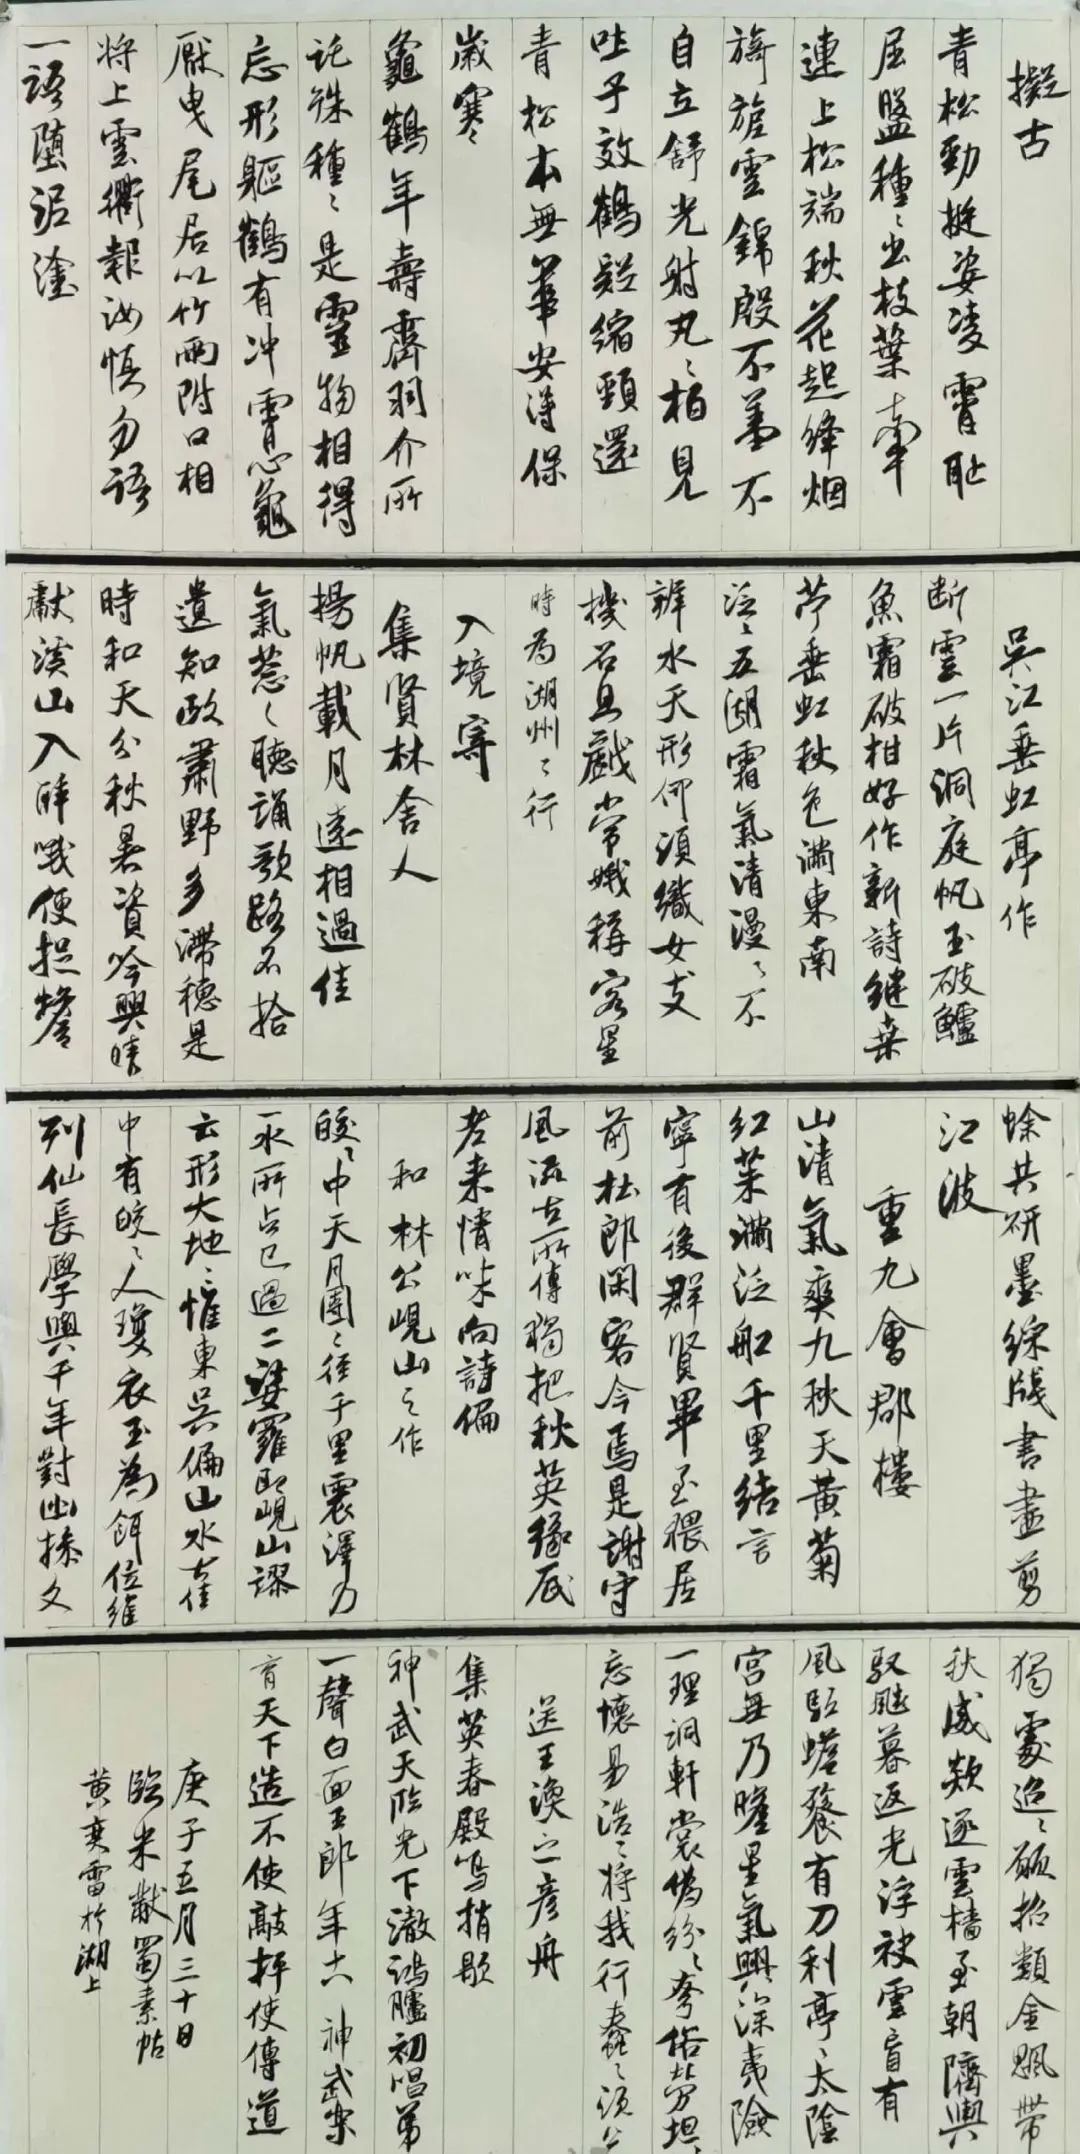 擬古
青松勁挺姿凌霄恥
屈盤種〻出枝葉牽
連上松端秋花起絳烟
旖旎雲錦殷不羞不
自立舒光射丸〻柏見
吐子效鶴疑縮頸還
青松本無華安得保
歲寒
龜鶴年壽齊羽介所
託殊種〻是靈物相得
忘形軀鶴有冲霄心龜
厭曳尾居以竹兩附口相
将上雲衢報汝慎勿語
一語墮泥塗
吳江垂虹亭作
断雲一片洞庭帆玉破鱸
魚霜破柑好作新詩継桑
苧垂虹秋色満東南
泛〻五湖霜氣清漫〻不
辨水天形何須織女支
機石且戲常娥稱客星
時為湖州之行
入境寄
集賢林舍人
揚帆載月遠相過佳
氣蔥〻聽誦歌路不拾
遺知政肅野多滯穗是
時和天分秋暑資吟興晴
獻溪山入醉哦便捉蟾
蜍共研墨綵牋書盡剪
江波
重九會郡樓
山清氣爽九秋天黄菊
红茱満泛船千里結言
寧有後群賢畢至猥居
前杜郎閑客今焉是謝守
風流古所傳獨把秋英緣底
老来情味向詩偏
和林公峴山之作
皎〻中天月團〻徑千里震澤乃
一水所占已過二娑羅即峴山謬
云形大地〻惟東吳偏山水古佳
中有皎〻人瓊衣玉為餌位維
列仙長學與千年對幽操久
獨處迢〻願招類金颸帶
秋威欻逐雲檣至朝隮輿
馭飈暮返光浮袂雲盲有
風驅蟾餮有刀利亭〻太陰
宫無乃瞻星氣興深夷險
一理洞軒裳偽紛〻夸俗勞坦〻
忘懷易浩〻将我行蠢〻須公
送王渙之彦舟
集英春殿鳴捎歇
神武天臨光下澈鴻臚初唱第
一聲白面王郎年十八神武樂
育天下造不使敲抨使傳道
庚子五月三十日
臨米黻蜀素帖
黄奕雷於湖上